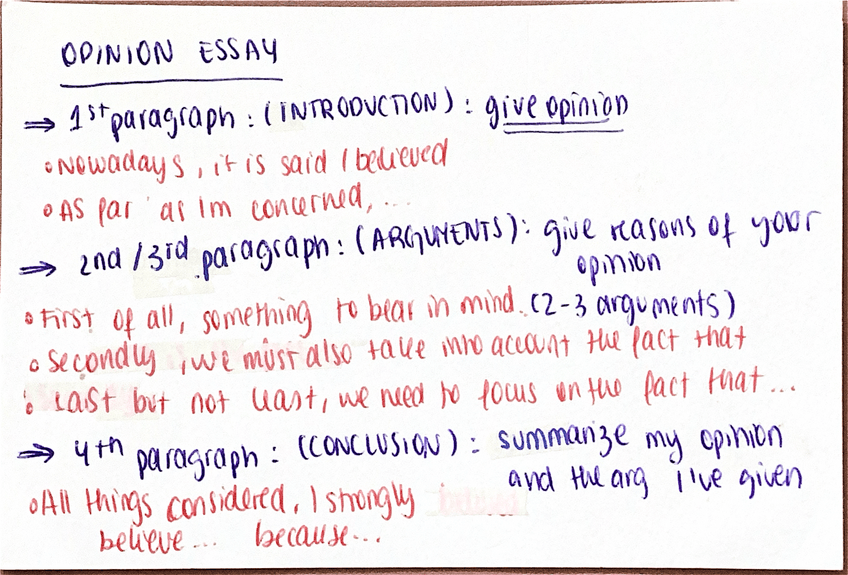 OPINION ESSAY
⇒ 1st paragraph : (INTRODUCTION) : give opinion
• Nowadays, it is said / believed
• As far as I'm concerned, ...
⇒ 2nd / 3rd paragraph : (ARGUMENTS) : give reasons of your
opinion
• First of all, something to bear in mind. (2-3 arguments)
• Secondly, we must also take into account the fact that
• Last but not least, we need to focus on the fact that...
⇒ 4th paragraph : (CONCLUSION) : summarize my opinion
and the arg i've given
• All things considered, I strongly
believe... because...